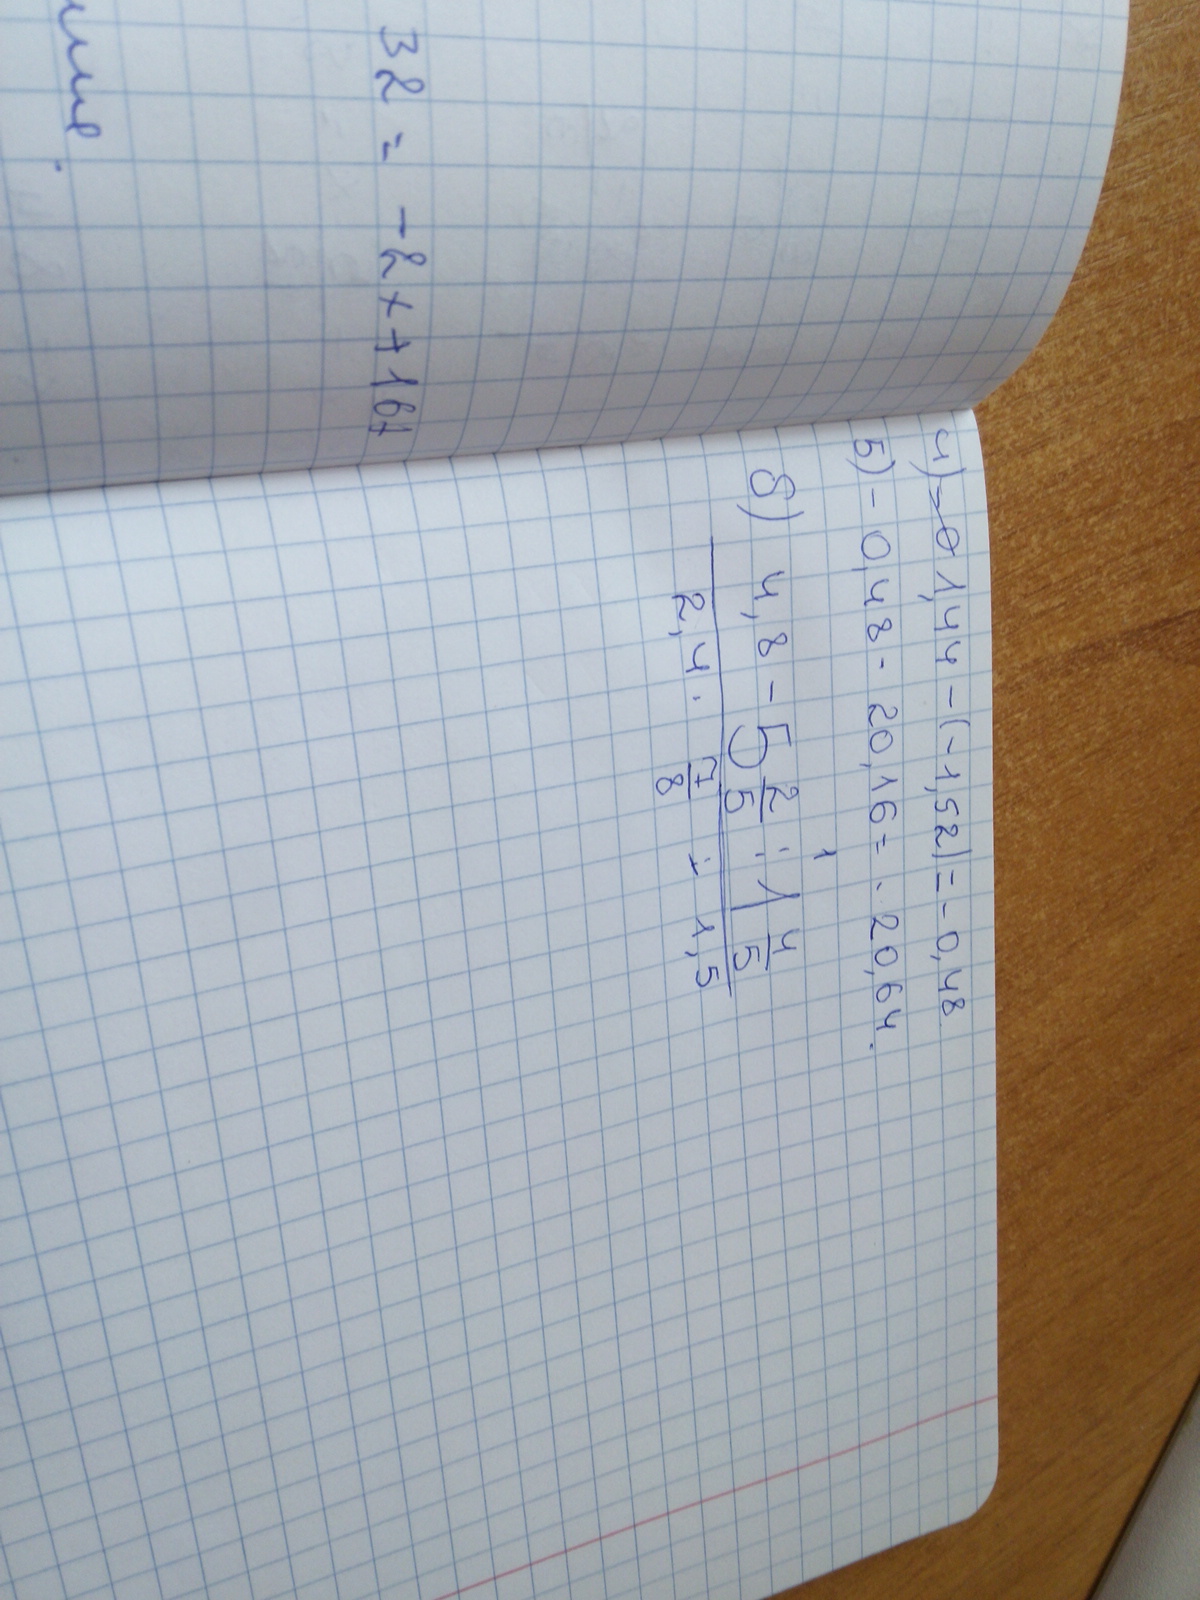 32 = -2x+16x
4) 1,44 - (-1,52) = -0,48
5) - 0,48 - 20,16 = - 20,64.
б) 4,8 - 5 2/5 : 1 4/5
2,4 · 7/8 : 1,5